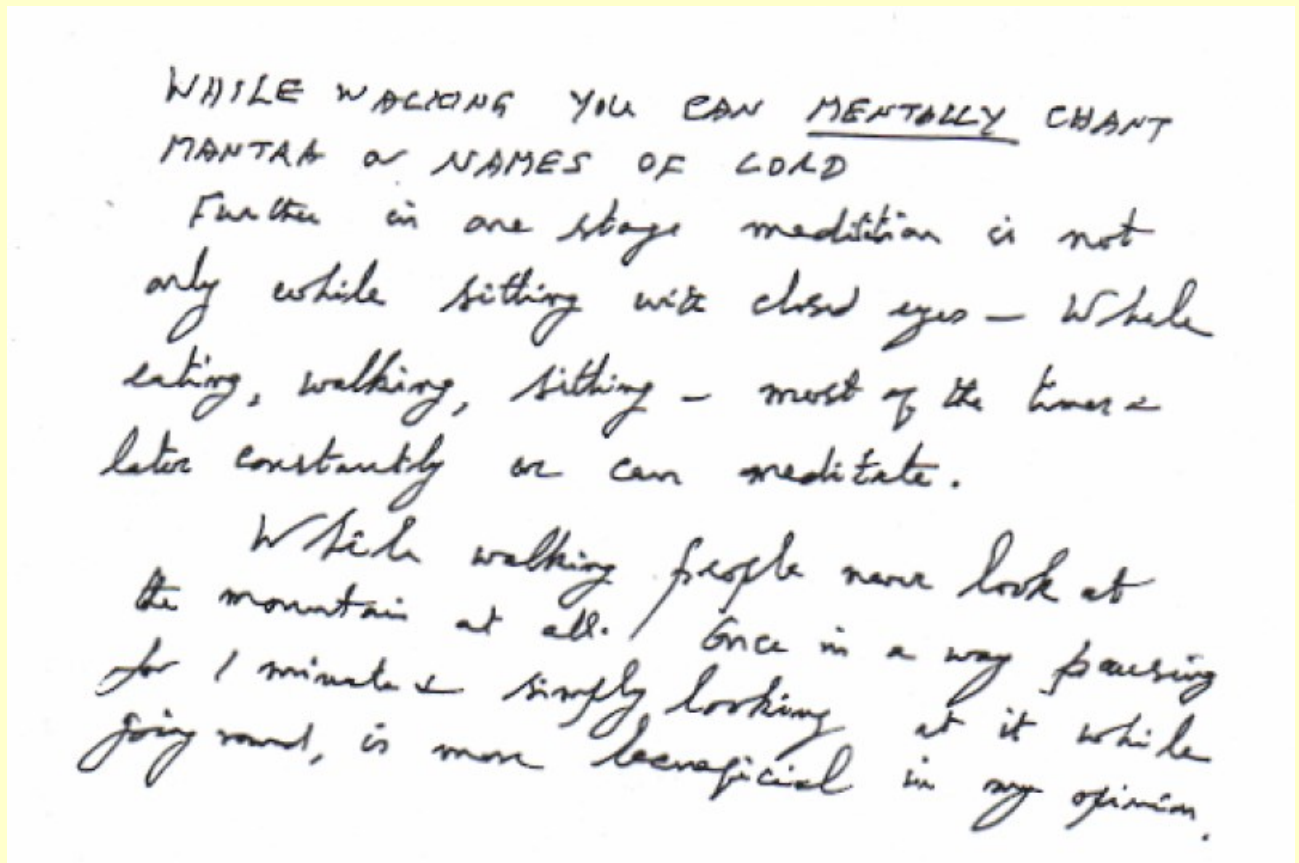 WHILE WALKING YOU CAN MENTALLY CHANT
MANTRA or NAMES OF LORD
Further in one stage meditation is not
only while sitting with closed eyes – While
eating, walking, sitting – most of the times &
later constantly one can meditate.
While walking people never look at
the mountain at all. Once in a way pausing
for 1 minute & simply looking at it while
going round, is more beneficial in my opinion.